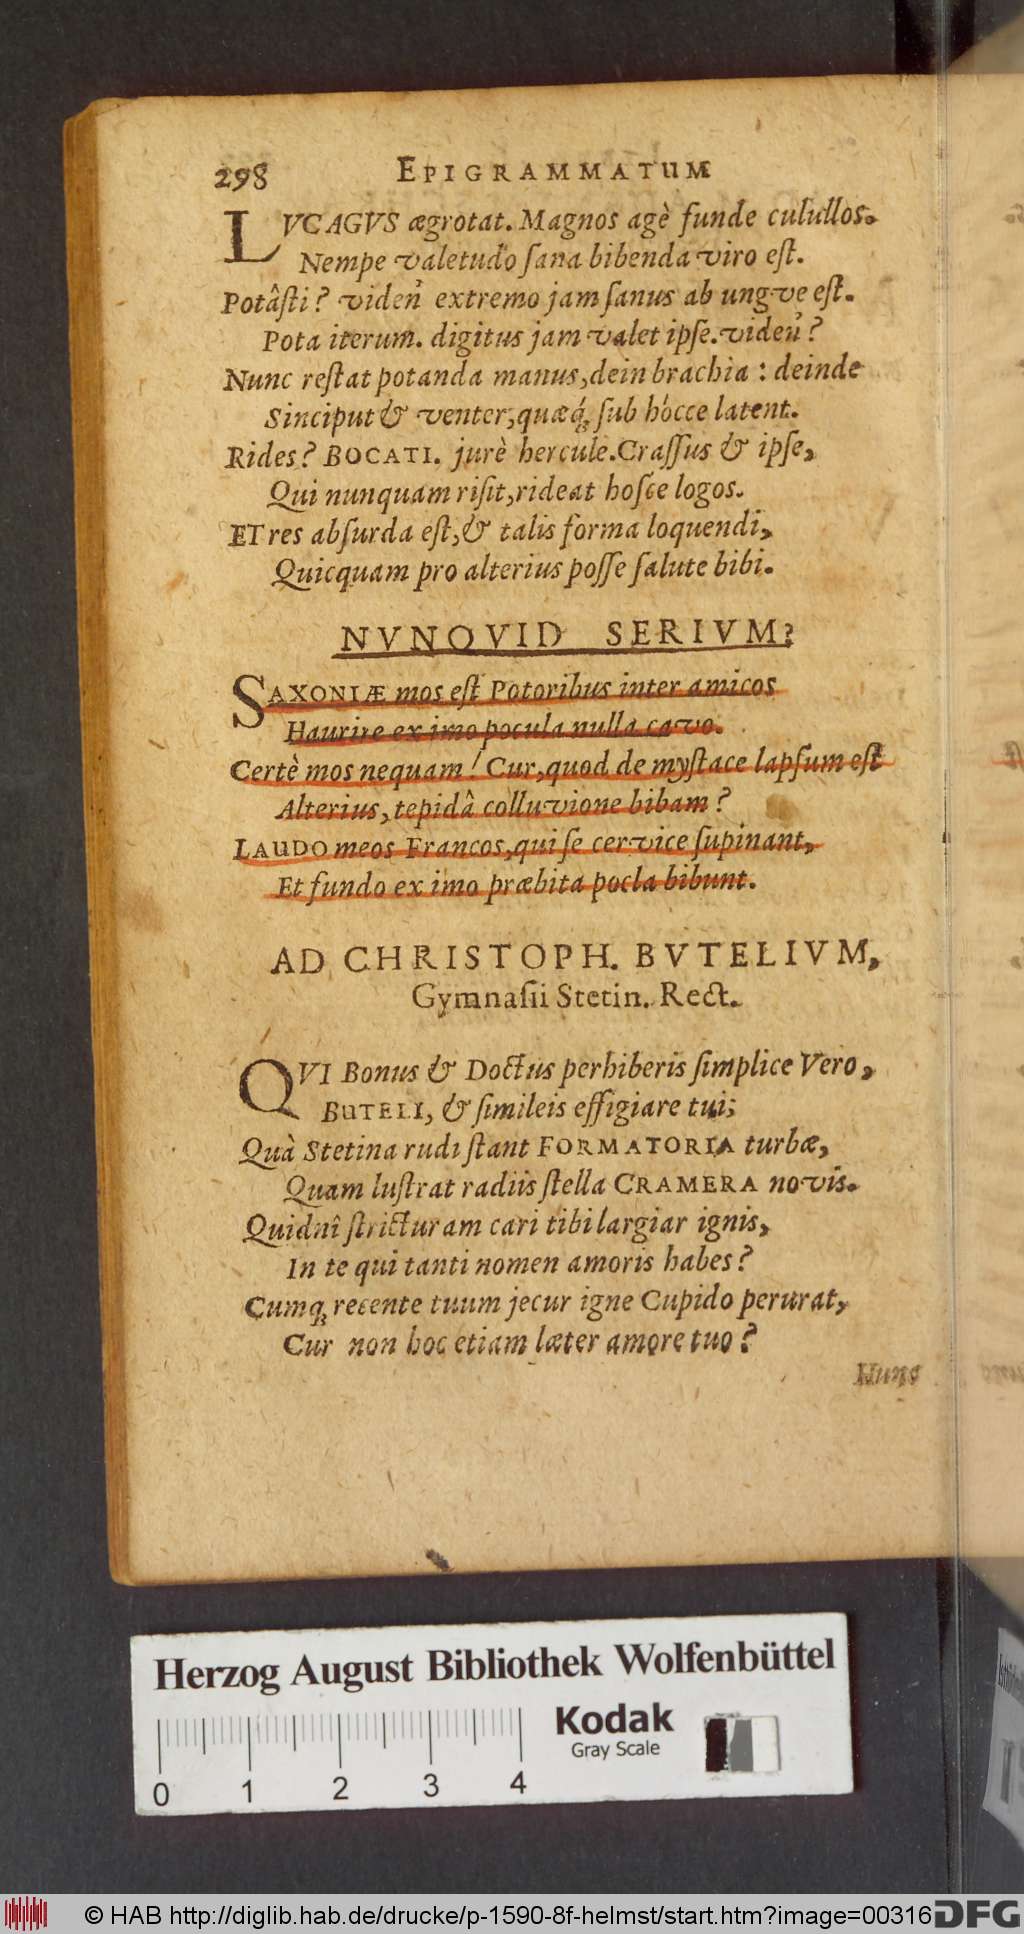 298 EPIGRAMMATUM
LVCAGVS ægrotat. Magnos agè funde culullos.
Nempe valetudo ſana bibenda viro eſt.
Potâſti? viden' extremo jam ſanus ab ungve eſt.
Pota iterum. digitus jam valet ipſe. viden'?
Nunc reſtat potanda manus, dein brachia: deinde
Sinciput & venter, quæq́; ſub hôcce latent.
Rides? BOCATI. jurè hercule. Craſſus & ipſe,
Qui nunquam riſit, rideat hoſce logos.
ET res abſurda eſt, & talis forma loquendi,
Quicquam pro alterius poſſe ſalute bibi.
NVNQVID SERIVM?
SAXONIÆ mos eſt Potoribus inter amicos
Haurire ex imo pocula nulla cavo.
Certè mos nequam! Cur, quod de myſtace lapſum eſt
Alterius, tepidâ colluvione bibam?
LAUDO meos Francos, qui ſe cervice ſupinant,
Et fundo ex imo præbita pocla bibunt.
AD CHRISTOPH. BVTELIVM,
Gymnaſii Stetin. Rect.
QVI Bonus & Doctus perhiberis ſimplice Vero,
BUTELI, & ſimileis effigiare tui;
Quà Stetina rudi ſtant FORMATORIA turbæ,
Quam luſtrat radiis ſtella CRAMERA novis.
Quidnî ſtricturam cari tibi largiar ignis,
In te qui tanti nomen amoris habes?
Cumq; recente tuum jecur igne Cupido perurat,
Cur non hoc etiam læter amore tuo?
Hunc
Herzog August Bibliothek Wolfenbüttel
Kodak
Gray Scale
0 1 2 3 4
© HAB http://diglib.hab.de/drucke/p-1590-8f-helmst/start.htm?image=00316
DFG